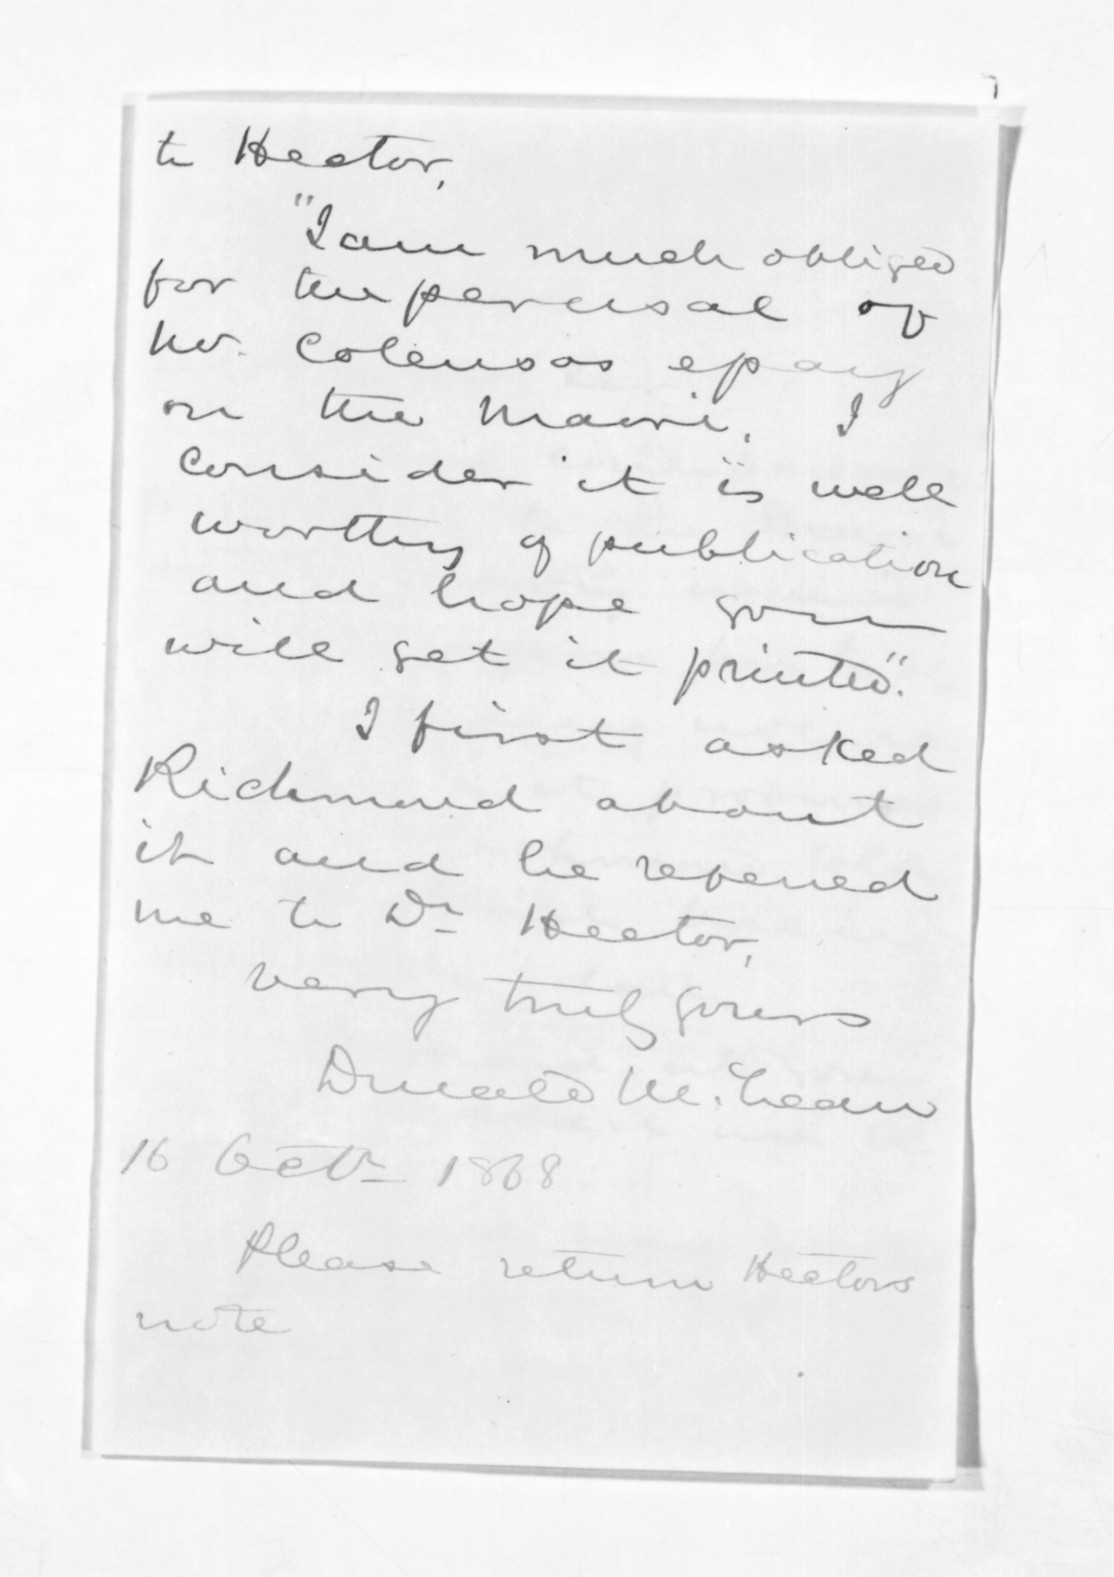 to Hector,
"I am much obliged
for the perusal of
Mr. Colensos essay
on the Maori. I
consider it is well
worthy of publication
and hope you
will get it printed".
I first asked
Richmond about
it and he referred
me to Dr Hector,
very truly yours
Donald McLean
16 Octr 1868
Please return Hectors
note